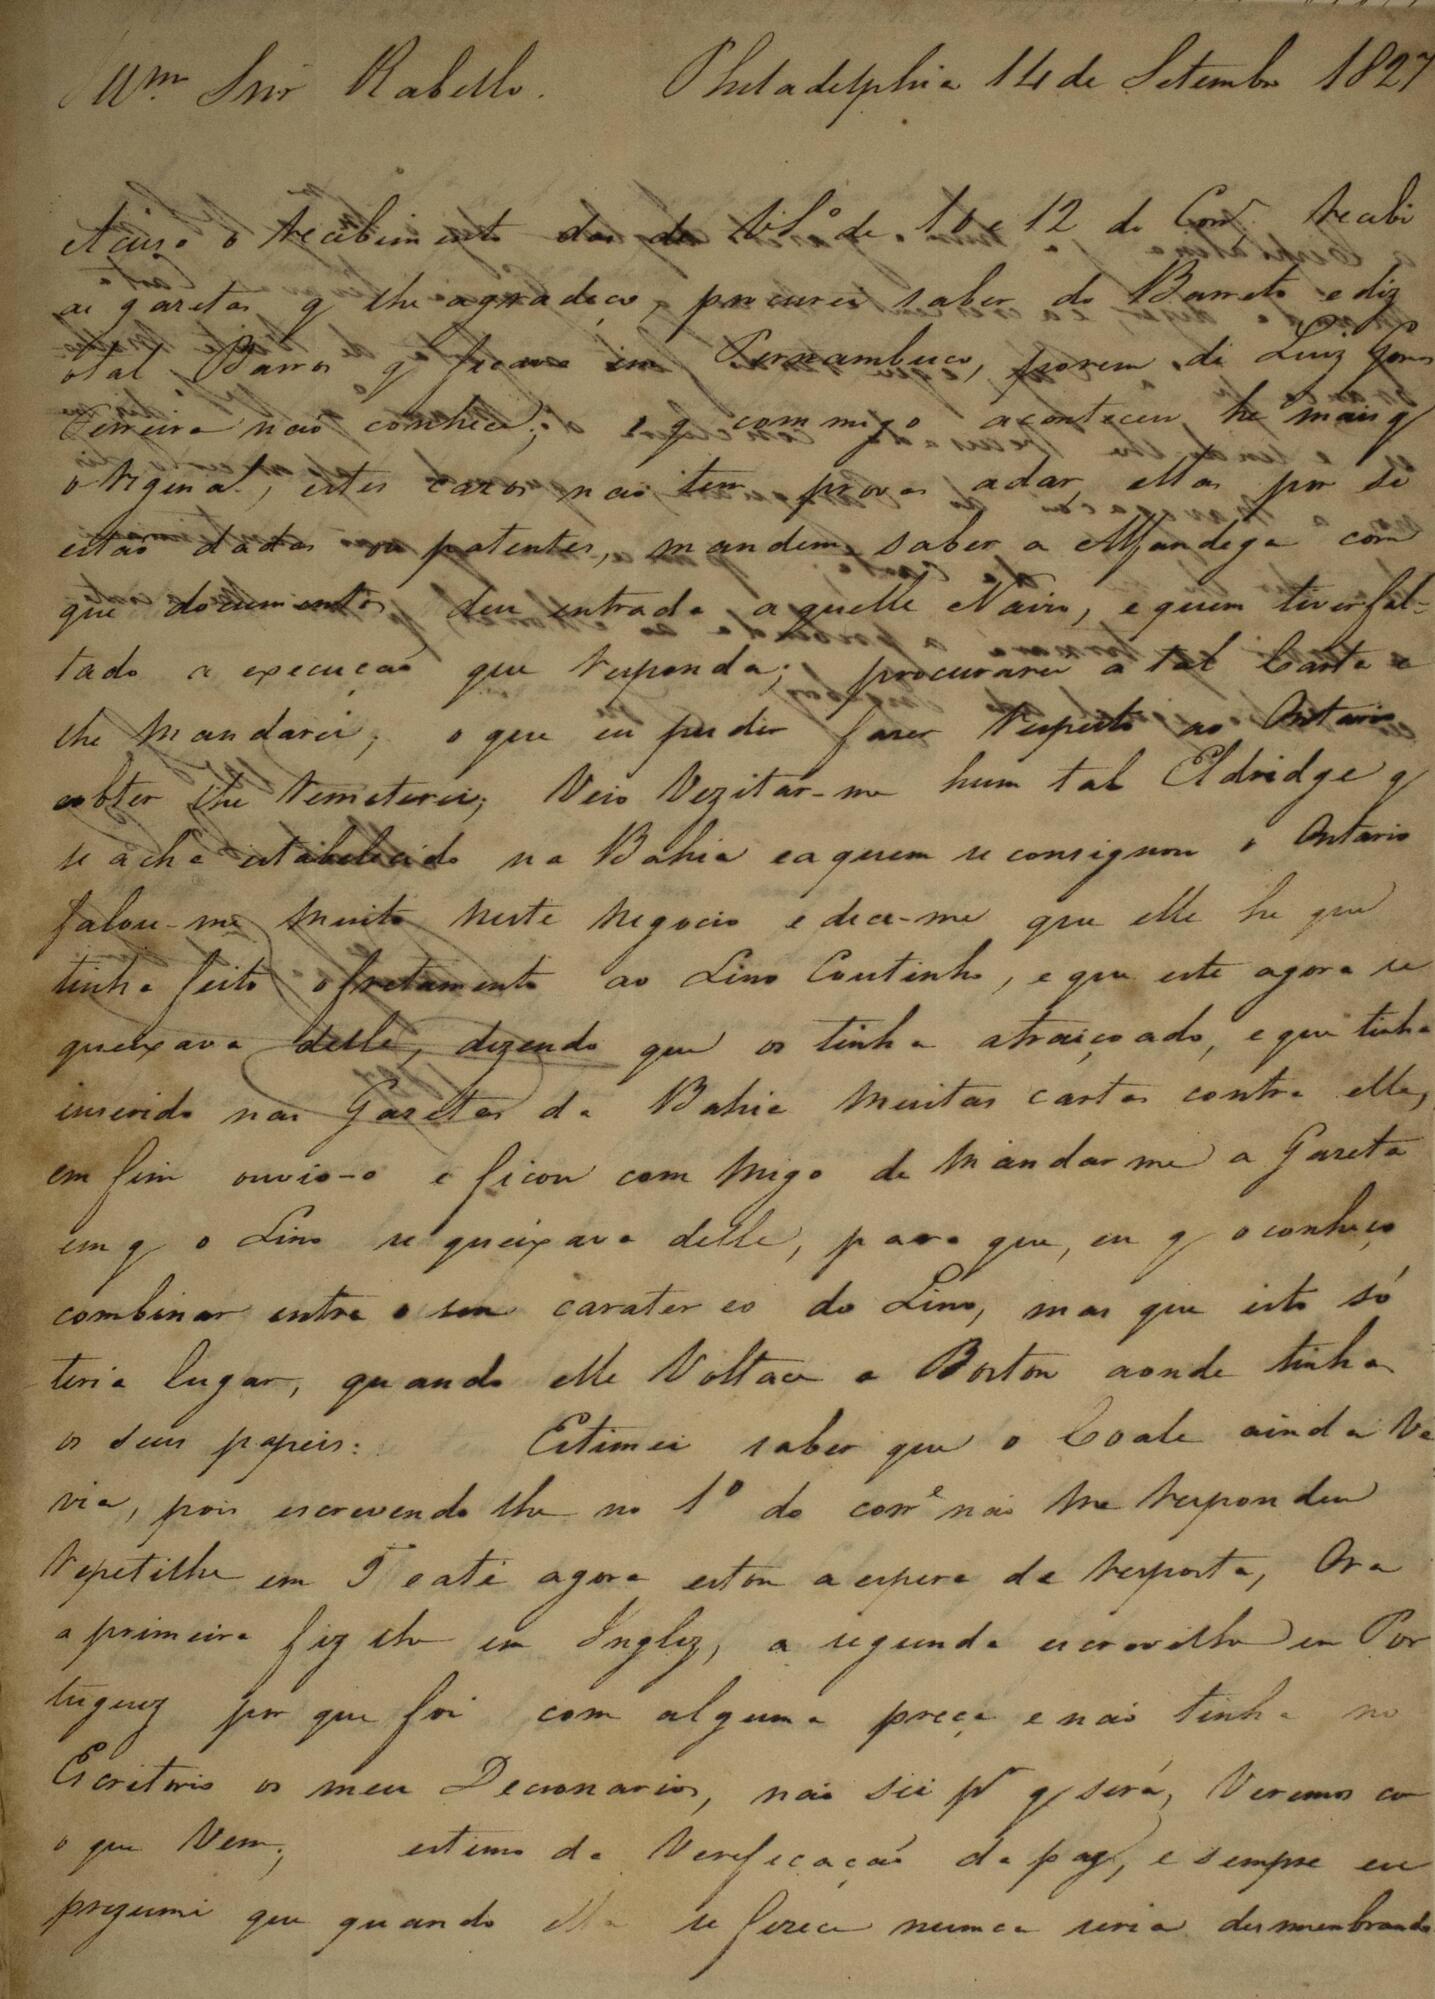 Illm Snr Rabello. Philadelphia 14 de Setembro 1827
Acuso o recebimento das de VS de 10 e 12 do Corr. recebi
as gazetas q lhe agradeço, procurei saber do Barreto e diz
o tal Barros q ficava em Pernambuco, porem de Luiz Gomes
Ferreira não conhece; e q commigo aconteceu he mais q
original, estes cazos não tem provas a dar, ellas por si
estão dadas ou patentes, mandem saber a Alfandega com
que documentos deu entrada aquelle Navio, e quem tiver fal-
tado a execução que responda; procurarei a tal Carta e
lhe mandarei, o que eu puder fazer respeito ao Ontario
obter lhe remeterei; Veio Vezitar-me hum tal Eldridge q
se acha estabelecido na Bahia e a quem se consignou o Ontario
falou-me muito neste negocio e dice-me que elle he que
tinha feito o fretamento ao Lino Coutinho, e que este agora se
queixava delle, dizendo que os tinha atraiçoado, e que tinha
inserido nas Gazetas da Bahia muitas cartas contra elle,
em fim ouvio-o e ficou com migo de mandar me a Gazeta
em q o Lino se queixava delle, para que, eu q o conheço
combinar entre o seu carater e o do Lino, mas que isto só
teria lugar, quando elle Voltace a Boston aonde tinha
os seus papeis: Estimei saber que o Coale ainda Ve
via, pois escrevendo lhe no 1º do corre não me respondeu
repetilhe em 5 e até agora estou a espera de resposta, Ora
a primeira fiz lhe em Inglez, a segunda escrevilhe em Por
tuguez por que foi com alguma preça e não tinha no
Escritorio os meu Decionarios, não sei pr q será, Veremos co
o que Vem; estimo da Verificação da paz, e sempre eu
prezumi que quando ella se fizece nunca seria desmembrando